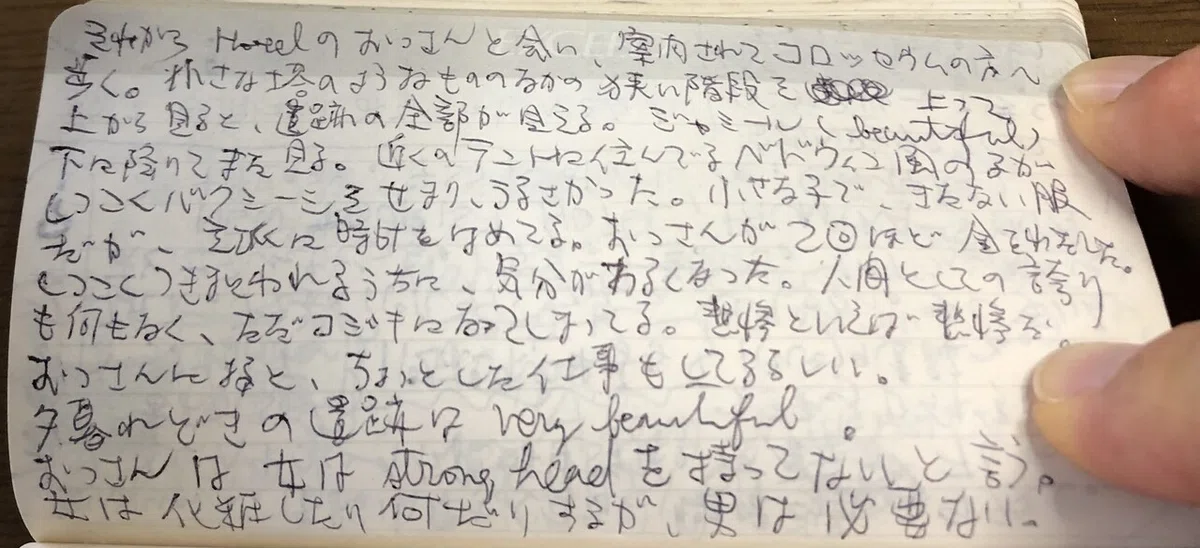 それから Hotelのおっさんと会い、案内されてコロッセウムの方へ
歩く。小さな塔のようなもののなかの狭い階段を 上って
上から見ると、遺跡の全部が見える。ジャミール (beautiful)
下に降りてまた見る。近くのテントに住んでるベドウィン風の
しつこくバクシーシをせまり、うるさかった。小さな子で、きたない服
だが、に時計をはめてる。おっさんが2回ほど金をわたした。
しつこくつきまとわれるうちに、気分がわるくなった。人間としての誇り
も何もなく、ただコジキになってしまってる。悲惨といえば悲惨だ。
おっさんによると、ちょっとした仕事もしてるらしい。
夕暮れどきの遺跡は very beautiful 。
おっさんは 女は strong headを持ってないと言う。
女は化粧したり何だりするが、男は必要ない。